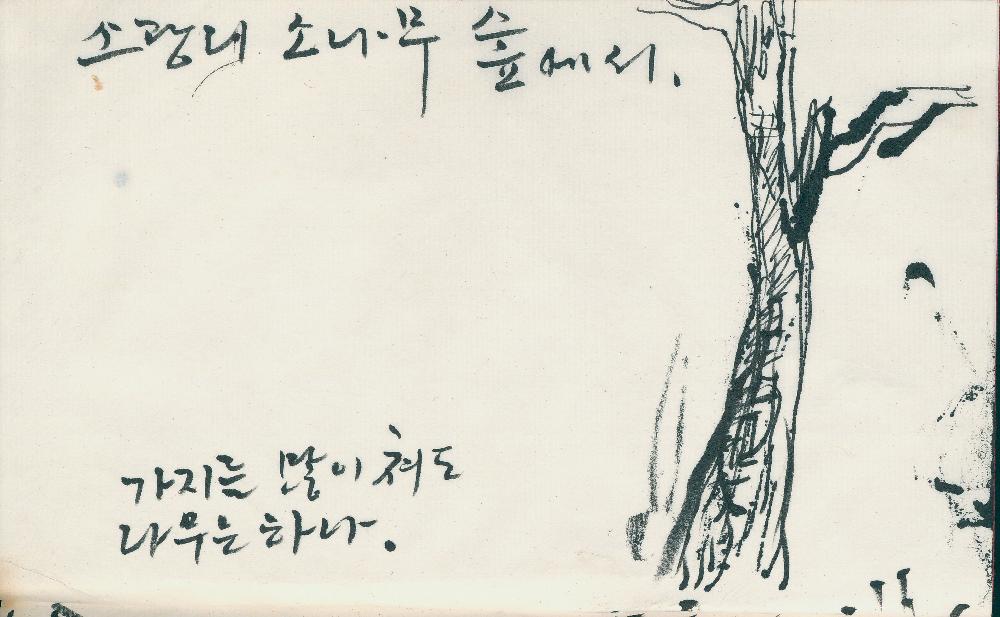 소광대 소나무 숲에서.
가지를 많이 쳐도
나무는 하나.